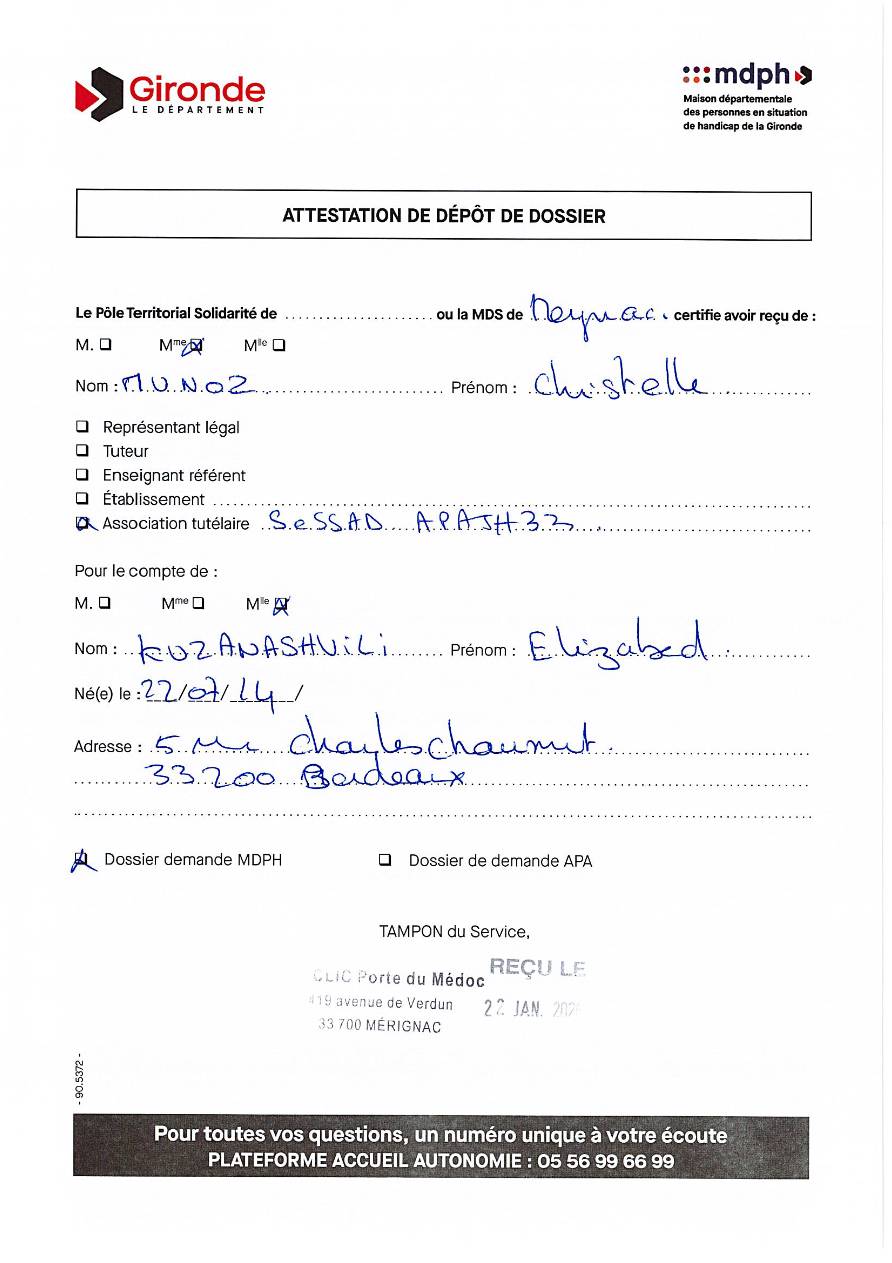 Gironde
LE DÉPARTEMENT
mdph
Maison départementale
des personnes en situation
de handicap de la Gironde
ATTESTATION DE DÉPÔT DE DOSSIER
Le Pôle Territorial Solidarité de ..................... ou la MDS de certifie avoir reçu de :
M. ☐ Mme ☒ Mlle ☐
Nom : MUNOZ Prénom : Christelle
☐ Représentant légal
☐ Tuteur
☐ Enseignant référent
☐ Établissement
☒ Association tutélaire SeSSAD APAJH33
Pour le compte de :
M. ☐ Mme ☐ Mlle ☒
Nom : KOZANASHViLi Prénom : Elizabed
Né(e) le : 22/07/14/
Adresse : 5 rue Charles Chaumet
33200 Bordeaux
☒ Dossier demande MDPH ☐ Dossier de demande APA
TAMPON du Service,
CLIC Porte du Médoc REÇU LE
419 avenue de Verdun 22 JAN.
33 700 MÉRIGNAC
- 90.5372 -
Pour toutes vos questions, un numéro unique à votre écoute
PLATEFORME ACCUEIL AUTONOMIE : 05 56 99 66 99